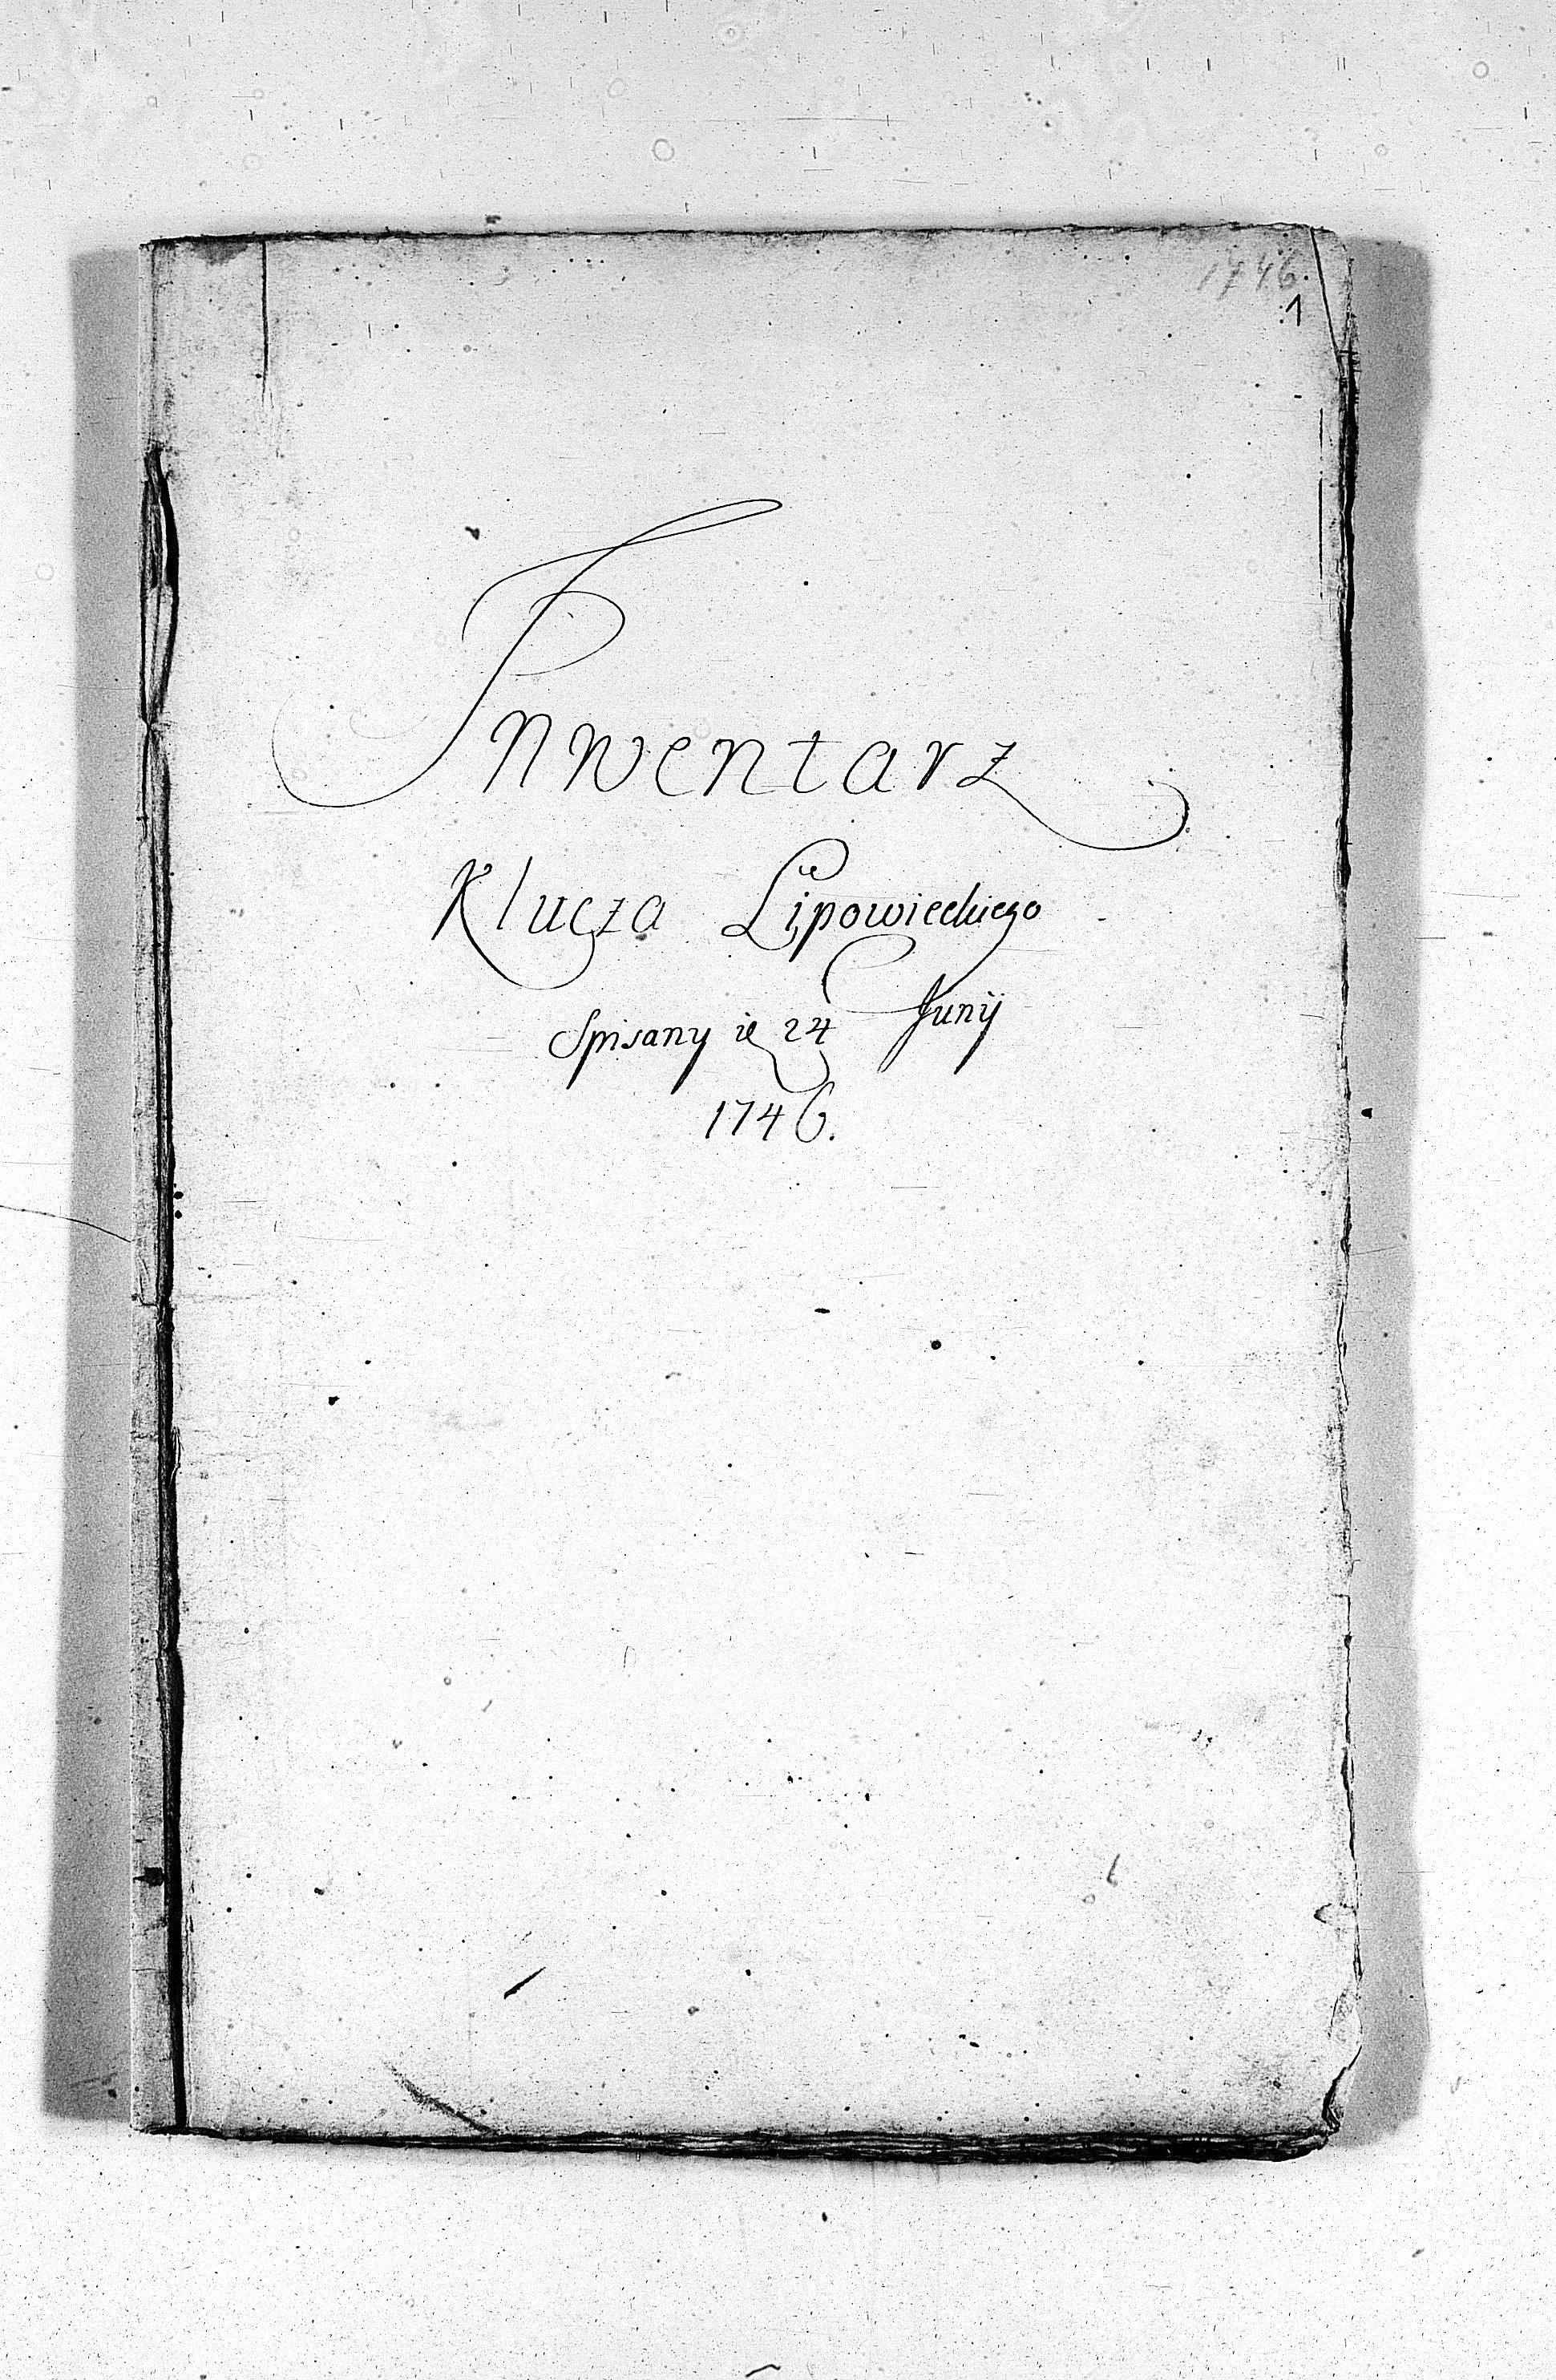 1746.
1
Inwentarz
Klucza Lipowieckiego
Spisany ie 24 Junij
1746.